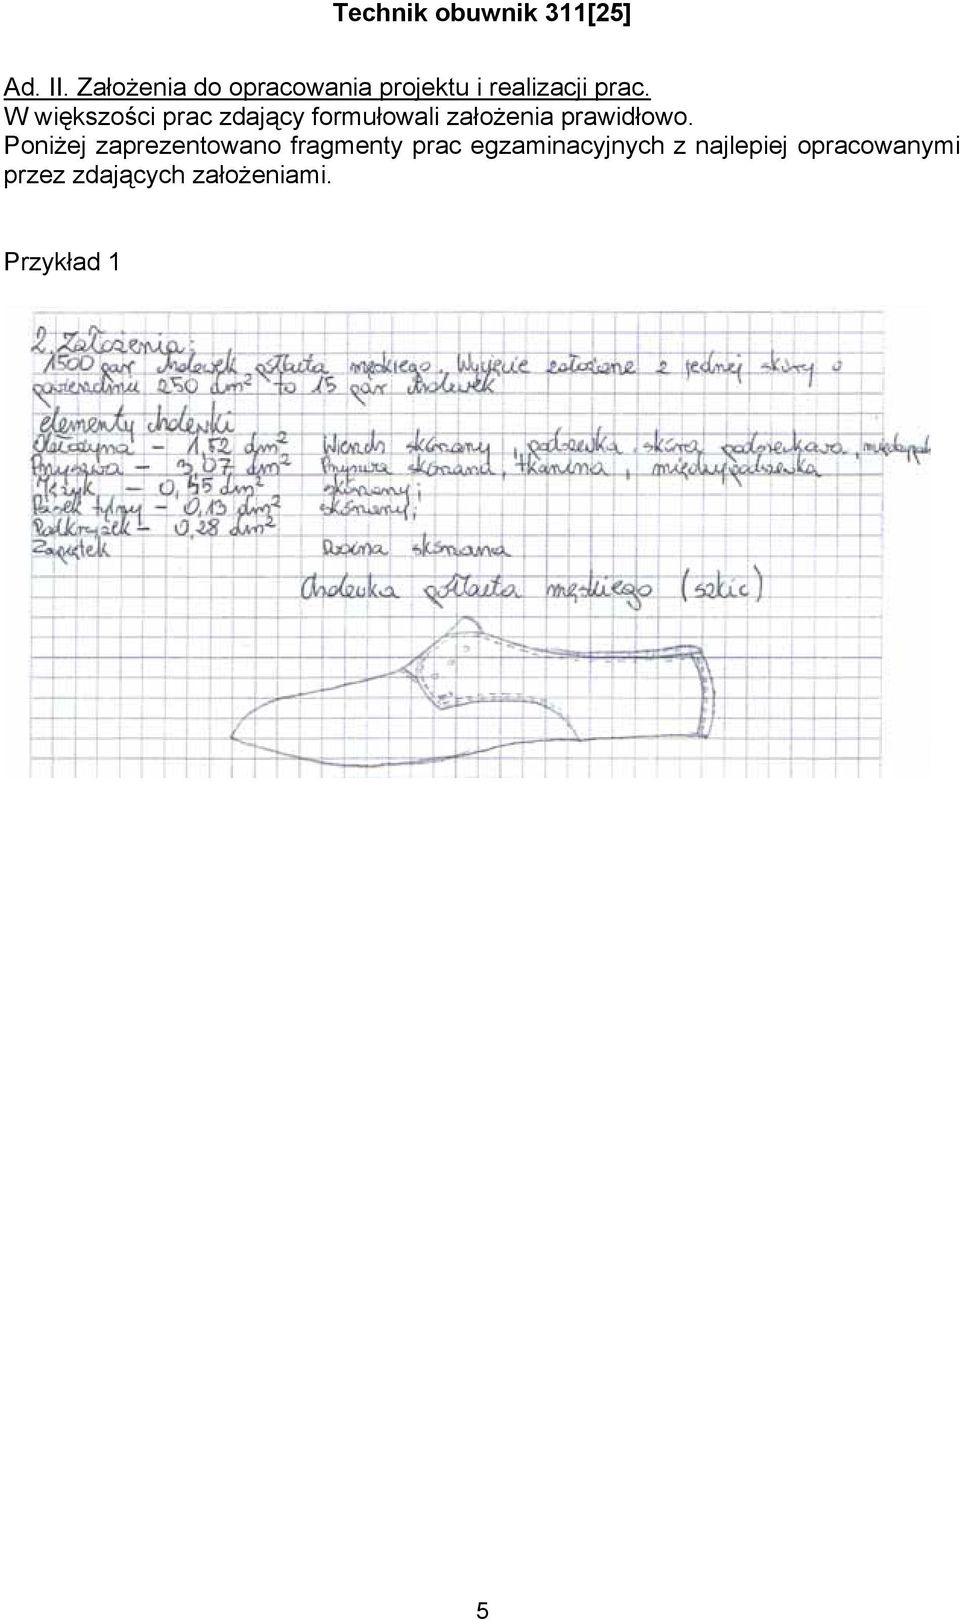 Technik obuwnik 311[25]
Ad. II. Założenia do opracowania projektu i realizacji prac.
W większości prac zdający formułowali założenia prawidłowo.
Poniżej zaprezentowano fragmenty prac egzaminacyjnych z najlepiej opracowanymi
przez zdających założeniami.
Przykład 1
2. Założenia:
1500 par cholewek półbuta męskiego. Wycięcie założone z jednej skóry o
powierzchni 250 dm² to 15 par cholewek
elementy cholewki
Obłożyna – 1,52 dm² Wierzch skórzany, podszewka skóra podszewkowa,
Przyszwa – 3,07 dm² Przyszwa skórzana, tkanina, międzypodszewka
Język – 0,45 dm² skórzany;
Pasek tylny – 0,13 dm² skórzany;
Podkrążek – 0,28 dm²
Zapiętek skórzana
Cholewka półbuta męskiego (szkic)
5